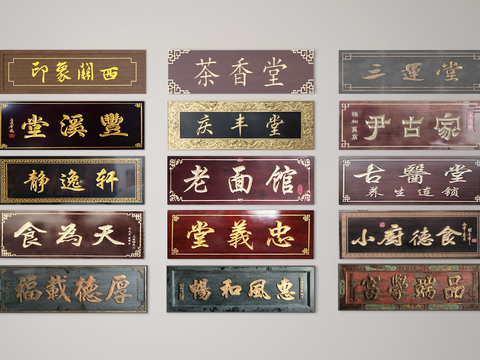 印象關西
茶香堂
三運堂
豐溪堂
庆丰堂
尹古家
静逸轩
老面馆
古醫堂
养生連锁
食為天
忠義堂
小厨德食
厚德載福
惠風和暢
品端學富